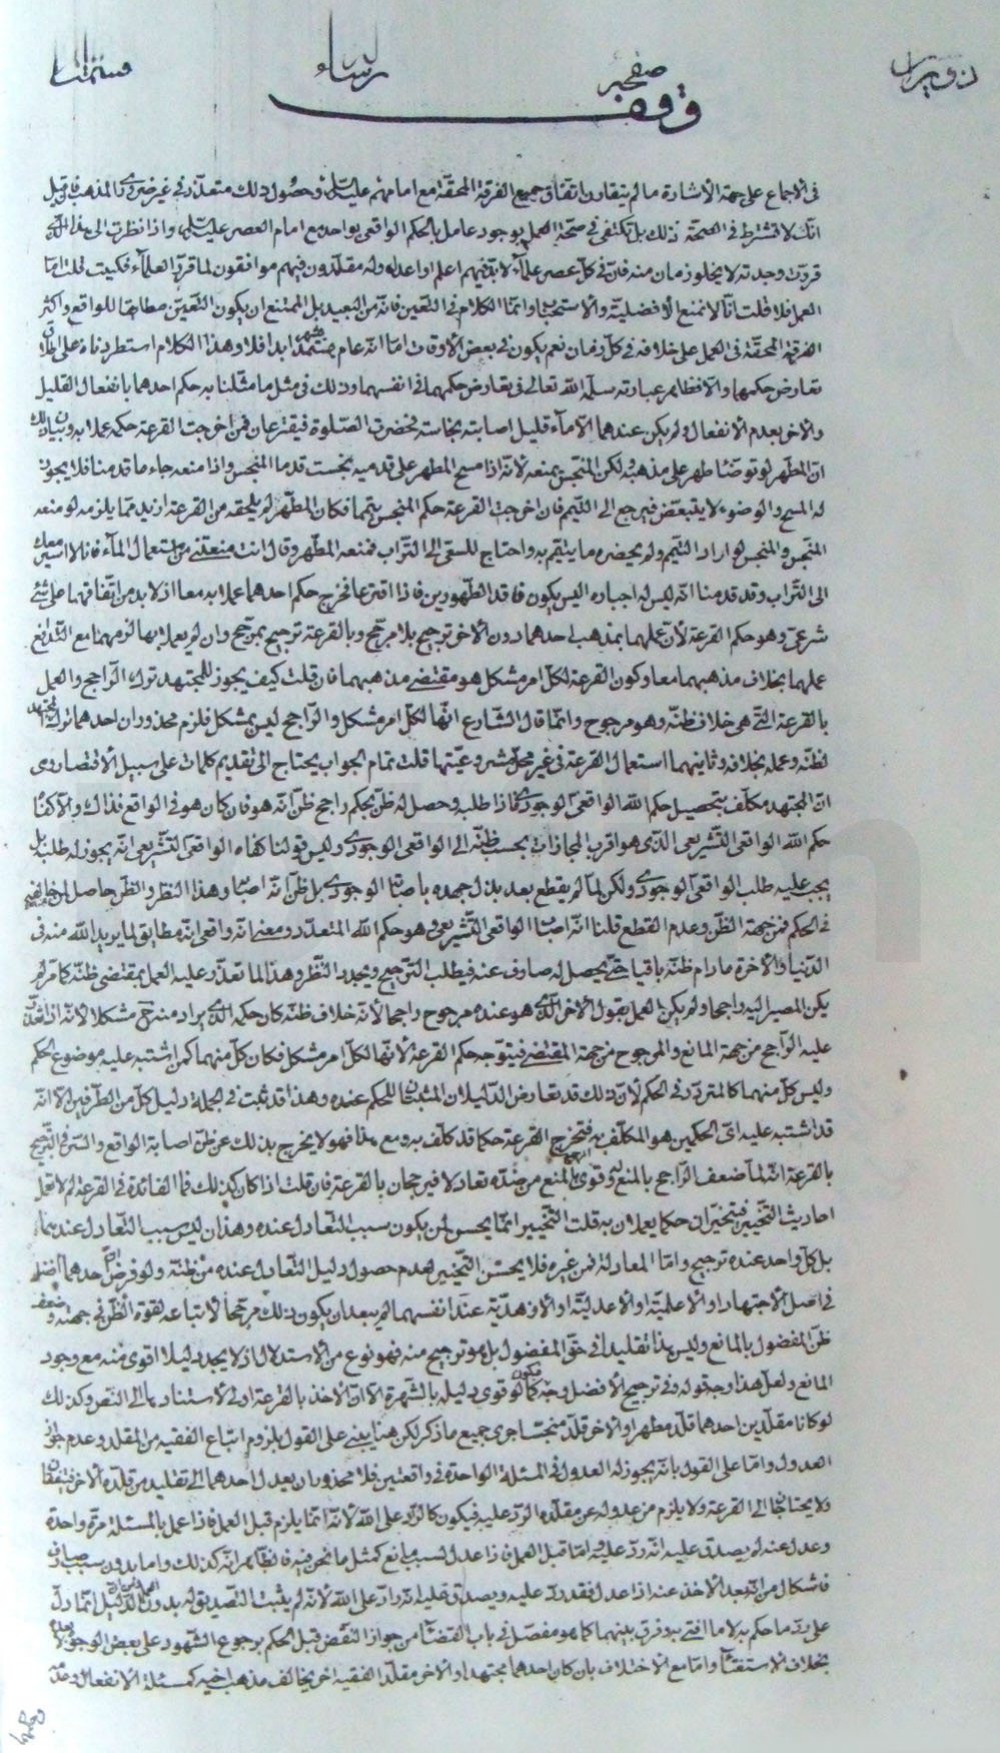 وقف
في الاجماع على جهة الاشارة ما لم يتقارن اتفاق جميع الفرقة المحقة مع امامهم عليه السلم وحصول ذلك متعذر في غير ضروري المذهب فان قيل
انك لا تشترط في الصحة ذلك بل تكتفي في صحة العمل بوجود عامل بالحكم الواقعي يواحد مع امام العصر عليه السلم واذا نظرت الى هذا الذي
قررت وجدته لا يخلو زمان منه فان في كل عصر علماء لا بد فيهم اعلم او اعدل وله مقلدون فيهم موافقون لما قرره العلماء فكيف قلت اما
العمل فلا قلت انا لا نمنع الافضلية والاستحباب وانما الكلام في التعين فانه من البعيد بل الممتنع ان يكون التعين مطابقا للواقع واكثر
الفرقة المحقة في العمل على خلافه في كل زمان نعم يكون في بعض الاوقات اما انه عام مستمر ابدا فلا وهذا الكلام استطردناه على اطلاق
تعارض حكمهما والا فظاهر عبارته سلمه الله تعالى في تعارض حكمهما في انفسهما وذلك في مثل ما مثلنا به حكم احدهما بانفعال القليل
والاخر بعدم الانفعال ولم يكن عندهما الا ماء قليل اصابته نجاسة فحضرت الصلوة فيقترعان فمن اخرجت القرعة حكمه عملا به وبيان ذلك
ان المطهر لو توضأ طهر على مذهبه ولكن المنجس يمنعه لانه اذا مسح المطهر على قدميه نجست قدما المنجس واذا منعه جاء ما قدمنا فلا يجوز
له المسح والوضوء لا يتبعض فيرجع الى التيمم فان اخرجت القرعة حكم المنجس تيمما فكان المطهر لم يلحقه من القرعة ازيد مما يلزمه لو منعه
المنجس والمنجس لو اراد التيمم ولم يحضره ما يتيمم به واحتاج للسعي الى التراب فمنعه المطهر وقال انت منعتني من استعمال الماء فانا لا اسير معك
الى التراب وقد قدمنا انه ليس له اجباره اليس يكون فاقد الطهورين فاذا اقترعا فخرج حكم احدهما عملا به معا اذ لا بد من اتفاقهما على شيء
شرعي وهو حكم القرعة لان عملهما بمذهب احدهما دون الاخر ترجيح بلا مرجح وبالقرعة ترجيح بمرجح وان لم يعملا بها لزمهما مع التدافع
عملهما بخلاف مذهبهما معا وكون القرعة لكل امر مشكل هو مقتضى مذهبهما فان قلت كيف يجوز للمجتهد ترك الراجح والعمل
بالقرعة التي هي خلاف ظنه وهو مرجوح وانما قال الشارع انها لكل امر مشكل والراجح ليس بمشكل فلزم محذوران احدهما ترك المجتهد
لظنه وعمله بخلافه وثانيهما استعمال القرعة في غير محل مشروعيتها قلت تمام الجواب يحتاج الى تقديم كلمات على سبيل الاقتصار وهي
ان المجتهد مكلف بتحصيل حكم الله الواقعي الوجودي فاذا طلبه وحصل له ظن بحكم راجح ظن انه هو فان كان هو في الواقع فذاك والا كفاه
حكم الله الواقعي التشريعي الذي هو اقرب المجازات بحسب ظنه الى الواقعي الوجودي وليس قولنا كفاه الواقعي التشريعي انه يجوز له طلبه بل
يجب عليه طلب الواقعي الوجودي ولكن لما لم يقطع بعد بذل جهده باصابة الوجودي بل ظن انه اصاب وهذا النظر والظن حاصل لمن خالفه
في الحكم فمن جهة الظن وعدم القطع قلنا انه اصاب الواقعي التشريعي وهو حكم الله المتعدد ومعنى انه واقعي انه مطابق لما يريد الله منه في
الدنيا والاخرة ما دام ظنه باقيا حتى يحصل له صارف عنه فيطلب الترجيح ويجدد النظر وهذا لما تعذر عليه العمل بمقتضى ظنه كما مر لم
يكن المصير اليه واجبا ولم يكن العمل بقول الاخر الذي هو عنده مرجوح راجحا لانه خلاف ظنه كان حكمه الذي يراد منه حينئذ مشكلا لانه اذا تعذر
عليه الراجح من جهة المانع والمرجوح من جهة المقتضي فيتوجه حكم القرعة لانها لكل امر مشكل فكان كل منهما كمن اشتبه عليه موضوع الحكم
وليس كل منهما كالمتردد في الحكم لان ذلك قد تعارض الدليلان المثبتان للحكم عنده وهذا قد ثبت في الجملة دليل كل من الطرفين الا انه
قد اشتبه عليه اي الحكمين هو المكلف به فتخرج القرعة حكما قد كلف به ومع هذا فهو لا يخرج بذلك عن ظن اصابة الواقع والسر في الترجيح
بالقرعة انه لما ضعف الراجح بالمنع وقوى المرجوح بالمنع من ضده تعادلا فيرجحان بالقرعة فان قلت اذا كان كذلك فما الفائدة في القرعة لم لا تعمل
احاديث التخيير فيتخيران حكما يعملان به قلت التخيير انما يحسن لمن يكون سبب التعادل عنده وهذان ليس سبب التعادل عندهما
بل كل واحد عنده ترجيح واما المعادلة فمن غيره فلا يحسن التخيير لعدم حصول دليل التعادل عنده من ظنه ولو فرض ان احدهما افضل
في اصل الاجتهاد او الاعلمية او الاعدلية او الازهدية عند انفسهما لم يبعد ان يكون ذلك مرجحا لاتباعه لقوة الظن في جهته وضعف
ظن المفضول بالمانع وليس هذا تقليدا في حق المفضول بل هو ترجيح منه فهو نوع من الاستدلال اذ لا يجد دليلا اقوى منه مع وجود
المانع ولعل هذا وجه قوله وفي ترجيح الافضل وجه فيكون كما لو قوى دليله بالشهرة الا ان الاخذ بالقرعة اولى لاستنادها الى النص وكذلك
لو كانا مقلدين احدهما قلد مطهرا والاخر قلد منجسا جرى جميع ما ذكر لكن هنا يبنى على القول بلزوم اتباع الفقيه من المقلد وعدم جواز
العدول واما على القول بانه يجوز له العدول في المسئلة الواحدة في واقعتين فلا محذور ان يعدل احدهما الى تقليد من قلده الاخر فيتفقان
ولا يحتاجا الى القرعة ولا يلزم من عدوله عن مقلده الرد عليه فيكون كالراد على الله لانه انما يلزم قبل العمل فاذا عمل بالمسئلة مرة واحدة
وعدل عنه لم يصدق عليه انه رد عليه واما قبل العمل فاذا عدل لسبب مانع كمثل ما نحن فيه فالظاهر انه كذلك واما بدون سبب صارف
فاشكال من انه بعد الاخذ عنه اذا عدل فقد رد عليه ويصدق عليه انه راد على الله لانه لم يثبت التصديق له بدون العمل ومن ان الدليل انما دل
على رد ما حكم به لا ما افتى به وفرق بينهما كما هو مفصل في باب القضاء من جواز النقض قبل الحكم برجوع الشهود على بعض الوجوه
بخلاف الاستفتاء واما مع الاختلاف بان كان احدهما مجتهدا والاخر مقلدا لفقيه اخر يخالف مذهب اخيه كمسئلة الانفعال وعدمه